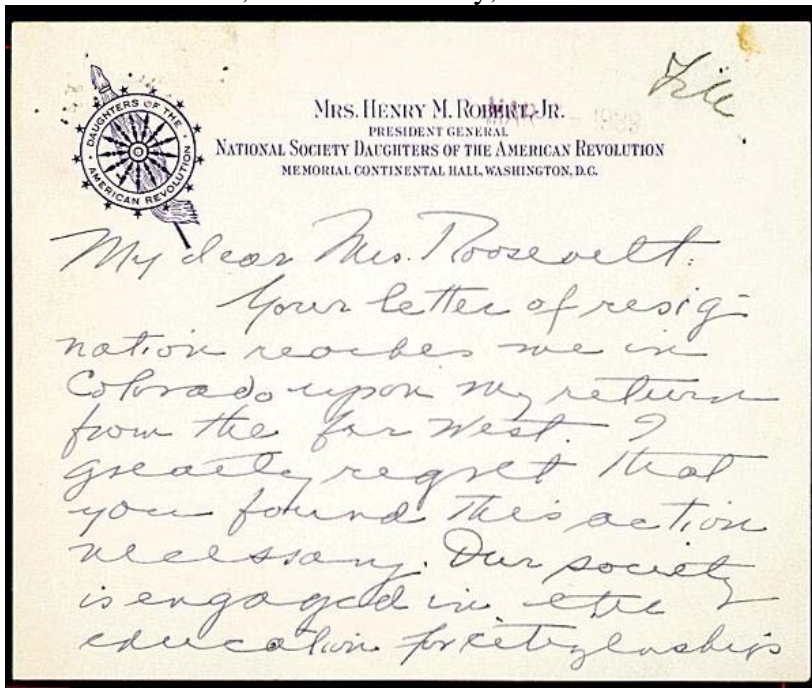 File
DAUGHTERS OF THE
AMERICAN REVOLUTION
MRS. HENRY M. ROBERT, JR.
1939
PRESIDENT GENERAL
NATIONAL SOCIETY DAUGHTERS OF THE AMERICAN REVOLUTION
MEMORIAL CONTINENTAL HALL, WASHINGTON, D.C.
My dear Mrs. Roosevelt:
Your letter of resig-
nation reaches me in
Colorado upon my return
from the far West. I
greatly regret that
you found this action
necessary. Our society
is engaged in the
education for citizenship